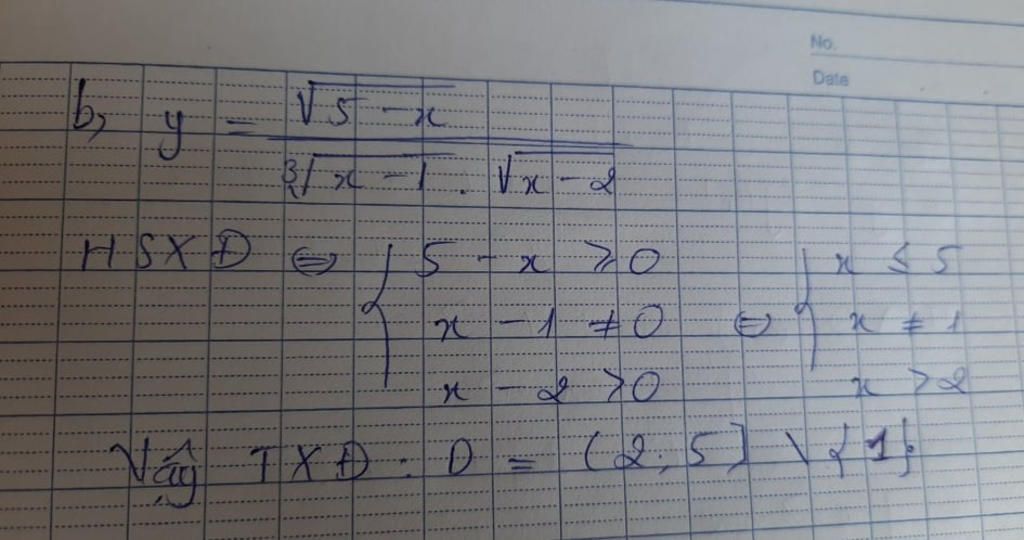 No.
Date
b, y = √(5 - x) / (∛(x - 1) . √(x - 2))
HSXĐ ⇔ { 5 - x ⩾ 0 { x ≤ 5
x - 1 ≠ 0 ⇔ x ≠ 1
x - 2 > 0 x > 2
Vậy TXĐ : D = (2; 5] \ {1}